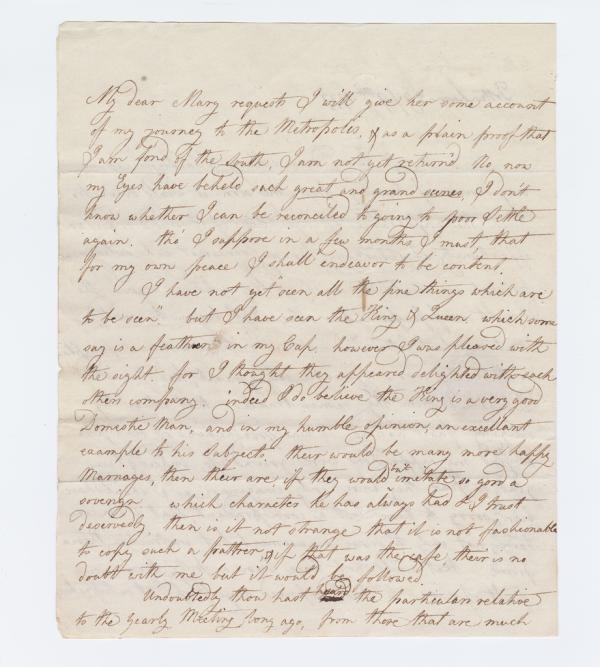 My dear Mary requests I will give her some account
of my journey to the Metropolis, & as a plain proof that
I am fond of the south, I am not yet return'd No, now
my Eyes have beheld such great and grand scenes, I don't
know whether I can be reconciled to going to poor Settle
again. tho' I suppose in a few months I must, that
for my own peace I shall endeavor to be content.
I have not yet "seen all the fine things which are
to be seen", but I have seen the King & Queen, which some
say is a feather in my Cap, however I was pleased with
the sight. for I thought they appeared delighted with each
others company. indeed I do believe the King is a very good
Domestic Man, and in my humble opinion, an excellent
example to his Subjects. their would be many more happy
Marriages, then their are, if they would but imitate so good a
soverign which character he has always had & I trust
deservedly, then is it not strange that it is not fashionable
to copy such a pattren, if that was the case, their is no
doubt with me, but it would be followed.
Undoubtedly thou hast heard the particulars relative
to the Yearly Meeting long ago, from those that are much